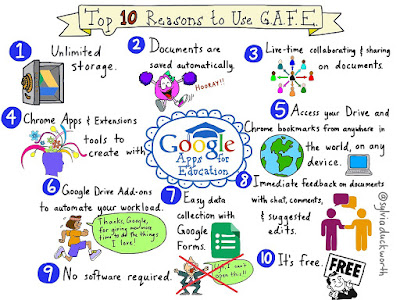 Top 10 Reasons to Use G.A.F.E.
1 Unlimited
storage.
2 Documents are
saved automatically.
HOORAY!!
3 Live-time collaborating & sharing
on documents.
4 Chrome Apps & Extensions
tools to
create with
Google
Apps for
Education
5 Access your Drive and
Chrome bookmarks from anywhere in
the world, on any
device.
6 Google Drive Add-ons
to automate your workload.
Thanks, Google,
for giving me more
time to do the things
I love!
7 Easy
data
collection with
Google
Forms.
8 Immediate feedback on documents
with chat, comments,
& suggested
edits.
@sylviaduckworth
9 No software required.
I can't
open this!!
10 It's free.
FREE